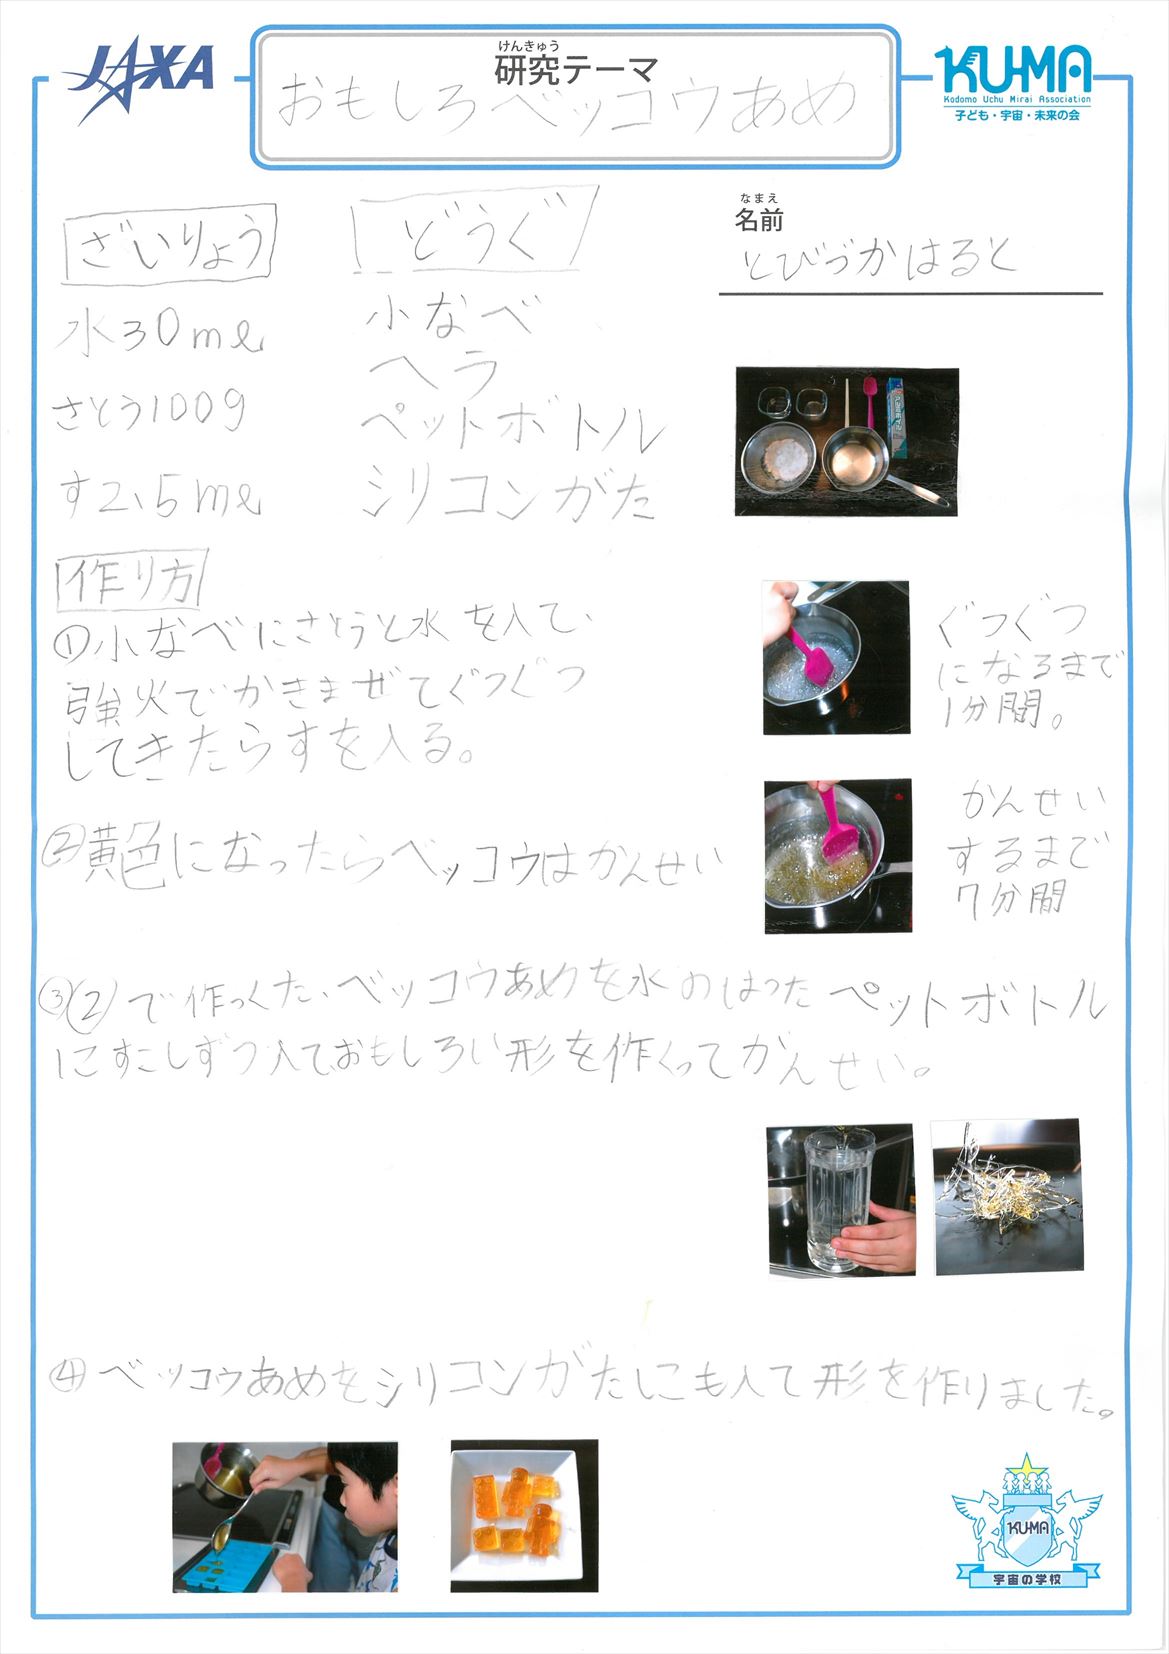 JAXA
けんきゅう
研究テーマ
おもしろベッコウあめ
KU-MA
Kodomo Uchu Mirai Association
子ども・宇宙・未来の会
なまえ
名前
とびづかはると
ざいりょう
水30ml
さとう100g
す2、5ml
どうぐ
小なべ
ヘラ
ペットボトル
シリコンがた
作り方
①小なべにさとうと水を入て、
強火でかきまぜてぐつぐつ
してきたらすを入る。
ぐつぐつ
になるまで
1分間。
②黄色になったらベッコウはかんせい
かんせい
するまで
7分間
③②で作っくた、ベッコウあめを水のはったペットボトル
にすこしずつ入ておもしろい形を作くってかんせい。
④ベッコウあめをシリコンがたにも入て形を作りました。
KU-MA
宇宙の学校